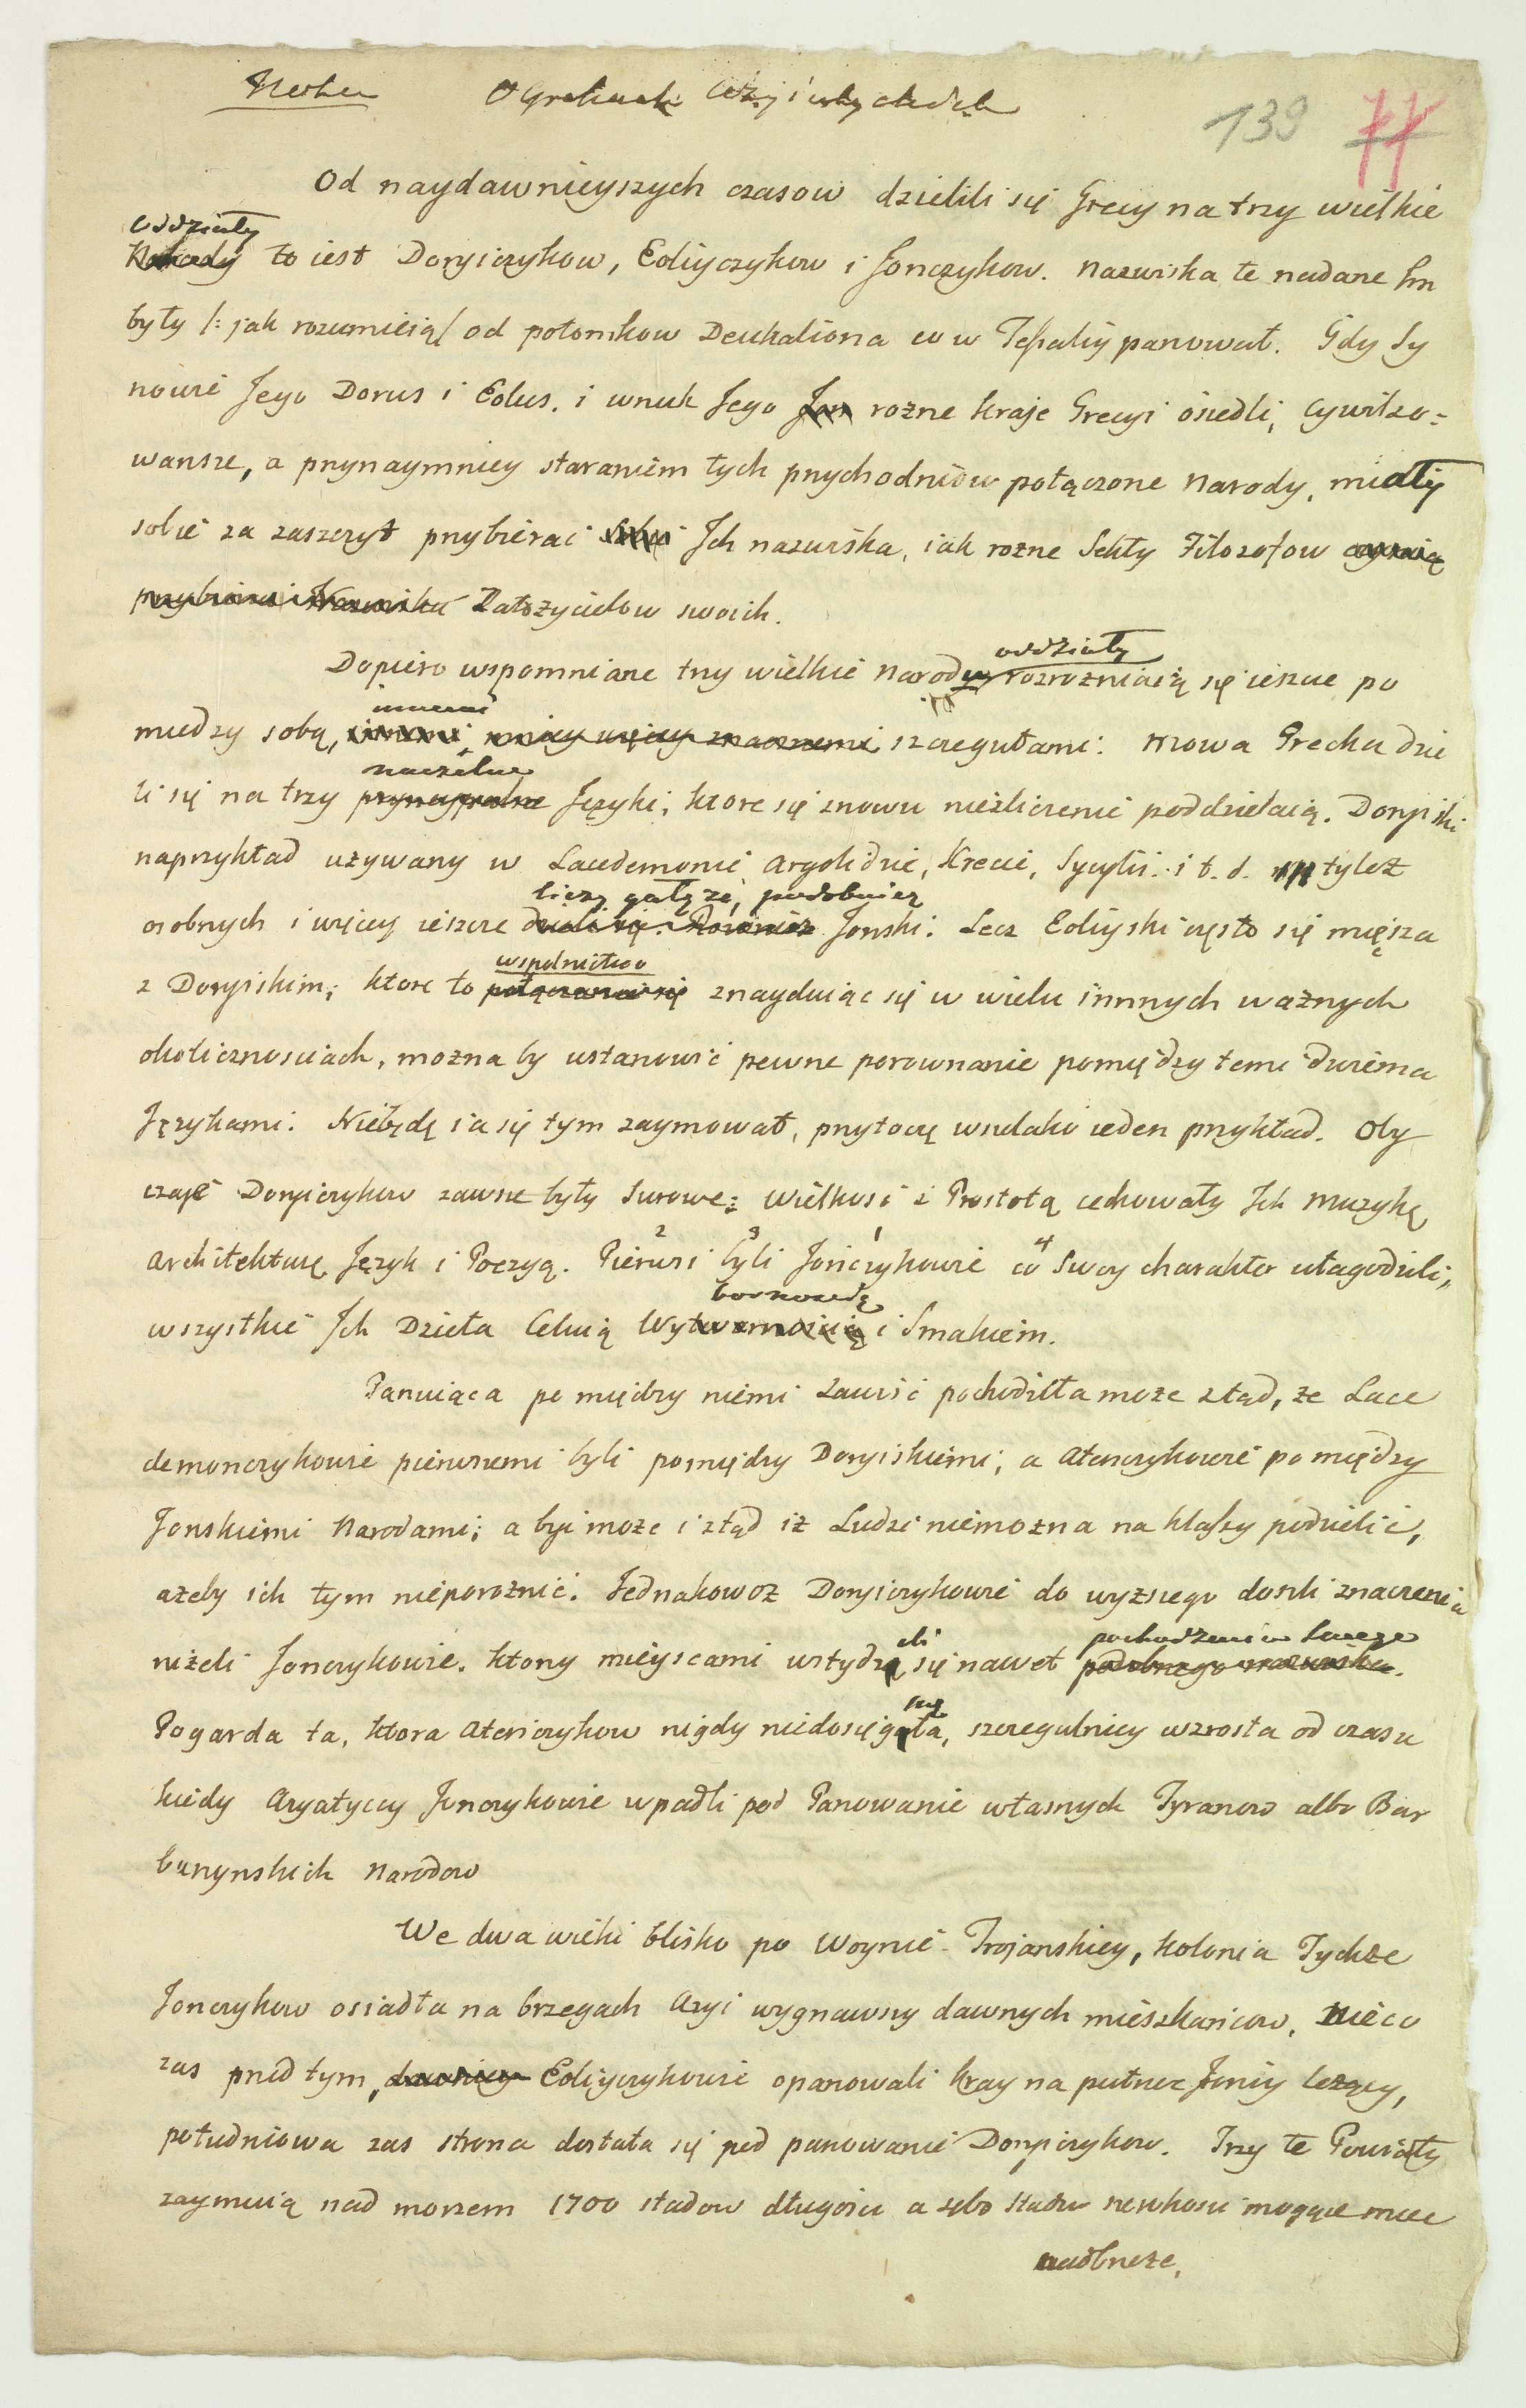 139 77
Od naydawnieyszych czasow dzielili się Grecy na trzy wielkie
oddziały
Narody to iest Doryiczykow, Eoliyczykow i Jonczykow. Nazwiska te nadane Im
były /: jak rozumieią / od potomkow Deukaliona co w Tessalij panował. Gdy Sy
nowie Jego Dorus i Eolus, i wnuk Jego Jon rozne kraje Grecyi osiedli, cywilizo=
wansze, a przynaymniey staraniem tych przychodniow połączone Narody, miały
sobie za zaszczyt przybierać Ich nazwiska, iak rozne Sekty Filozofow czynią
przybieraiąc Nazwiska Założycielow swoich.
oddziały
Dopiero wspomniane trzy wielkie Narody rozrozniaią się ieszcze po
innemi
między sobą, mniey więcey znacznemi szczegułami: Mowa Grecka dzie
naczelne
li się na trzy pryncypalne Języki, ktore się znowu niezliczenie poddzielaią. Doryiski
naprzykład używany w Lacedemonie Argolidzie, Krecie, Sycylii i t. d. tyleż
liczy gałęzi, podobnież
osobnych i więcey ieszcze dzieli się. Rownież Jonski. Lecz Eoliyski często się mięsza
wspolnictwo
z Doryiskim; ktore to połączenie się znayduiąc się w wielu innnych ważnych
okolicznosciach, można by ustanowić pewne porownanie pomiędzy temi dwiema
Językami. Niebędę ia się tym zaymował, przytoczę wszelako ieden przykład. Oby
czaje Doryiczykow zawsze były surowe; wielkość i Prostota cechowały Ich Muzykę
2 3 1 4
Architekturę Język i Poezyą. Pierwsi byli Jonczykowie co Swoy charakter ułagodzili;
wszystkie Ich Dzieła Celuią Wytwornością i Smakiem.
Panuiąca pomiędzy niemi zawiść pochodziła może ztąd, że Lace
demonczykowie pierwszemi byli pomiędzy Doryiskiemi, a Atenczykowie pomiędzy
Jonskiemi Narodami; a być może i ztąd iż Ludzi niemożna na klassy podzielić,
ażeby ich tym nieporoznić. Jednakowoz Doryiczykowie do wyższego doszli znaczenia
ili pochodzenia swego
niżeli Jonczykowie. ktorzy mieyscami wstydzą się nawet podobnego nazwiska.
nę
Pogarda ta, ktora Atenczykow nigdy niedosięgała, szczegulniey wzrosła od czasu
kiedy Azyatyccy Jonczykowie wpadli pod Panowanie własnych Tyranow albo Bar
barzynskich Narodow
We dwa wieki blisko po Woynie Trojanskiey, kolonia Tychże
Jonczykow osiadła na brzegach Azyi wygnawszy dawnych mieszkancow. Nieco
zas przed tym, dawniey Eoliyczykowie opanowali kray na pułnoc Jonij leżący,
południowa zas strona dostała się pod panowanie Doryiczykow. Trzy te Powiaty
zaymuią nad morzem 1700 stadow długości a stadow szerokosci mogące miec
nadbrzeże.